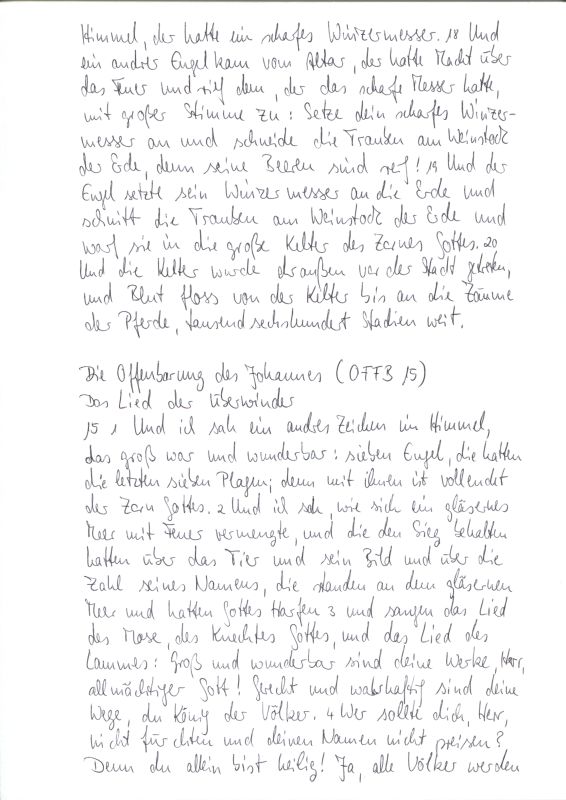 Himmel, der hatte ein scharfes Winzermesser. 18 Und
ein andrer Engel kam vom Altar, der hatte Macht über
das Feuer und rief dem, der das scharfe Messer hatte,
mit großer Stimme zu: Setze dein scharfes Winzer-
messer an und schneide die Trauben am Weinstock
der Erde, denn seine Beeren sind reif! 19 Und der
Engel setzte sein Winzermesser an die Erde und
schnitt die Trauben am Weinstock der Erde und
warf sie in die große Kelter des Zornes Gottes. 20
Und die Kelter wurde draußen vor der Stadt getreten,
und Blut floss von der Kelter bis an die Zäume
der Pferde, tausendsechshundert Stadien weit.
Die Offenbarung des Johannes (OFFB 15)
Das Lied der Überwinder
15 1 Und ich sah ein andres Zeichen im Himmel,
das groß war und wunderbar: sieben Engel, die hatten
die letzten sieben Plagen; denn mit ihnen ist vollendet
der Zorn Gottes. 2 Und ich sah, wie sich ein gläsernes
Meer mit Feuer vermengte, und die den Sieg behalten
hatten über das Tier und sein Bild und über die
Zahl seines Namens, die standen an dem gläsernen
Meer und hatten Gottes Harfen 3 und sangen das Lied
des Mose, des Knechtes Gottes, und das Lied des
Lammes: Groß und wunderbar sind deine Werke, Herr,
allmächtiger Gott! Gerecht und wahrhaftig sind deine
Wege, du König der Völker. 4 Wer sollte dich, Herr,
nicht fürchten und deinen Namen nicht preisen?
Denn du allein bist heilig! Ja, alle Völker werden